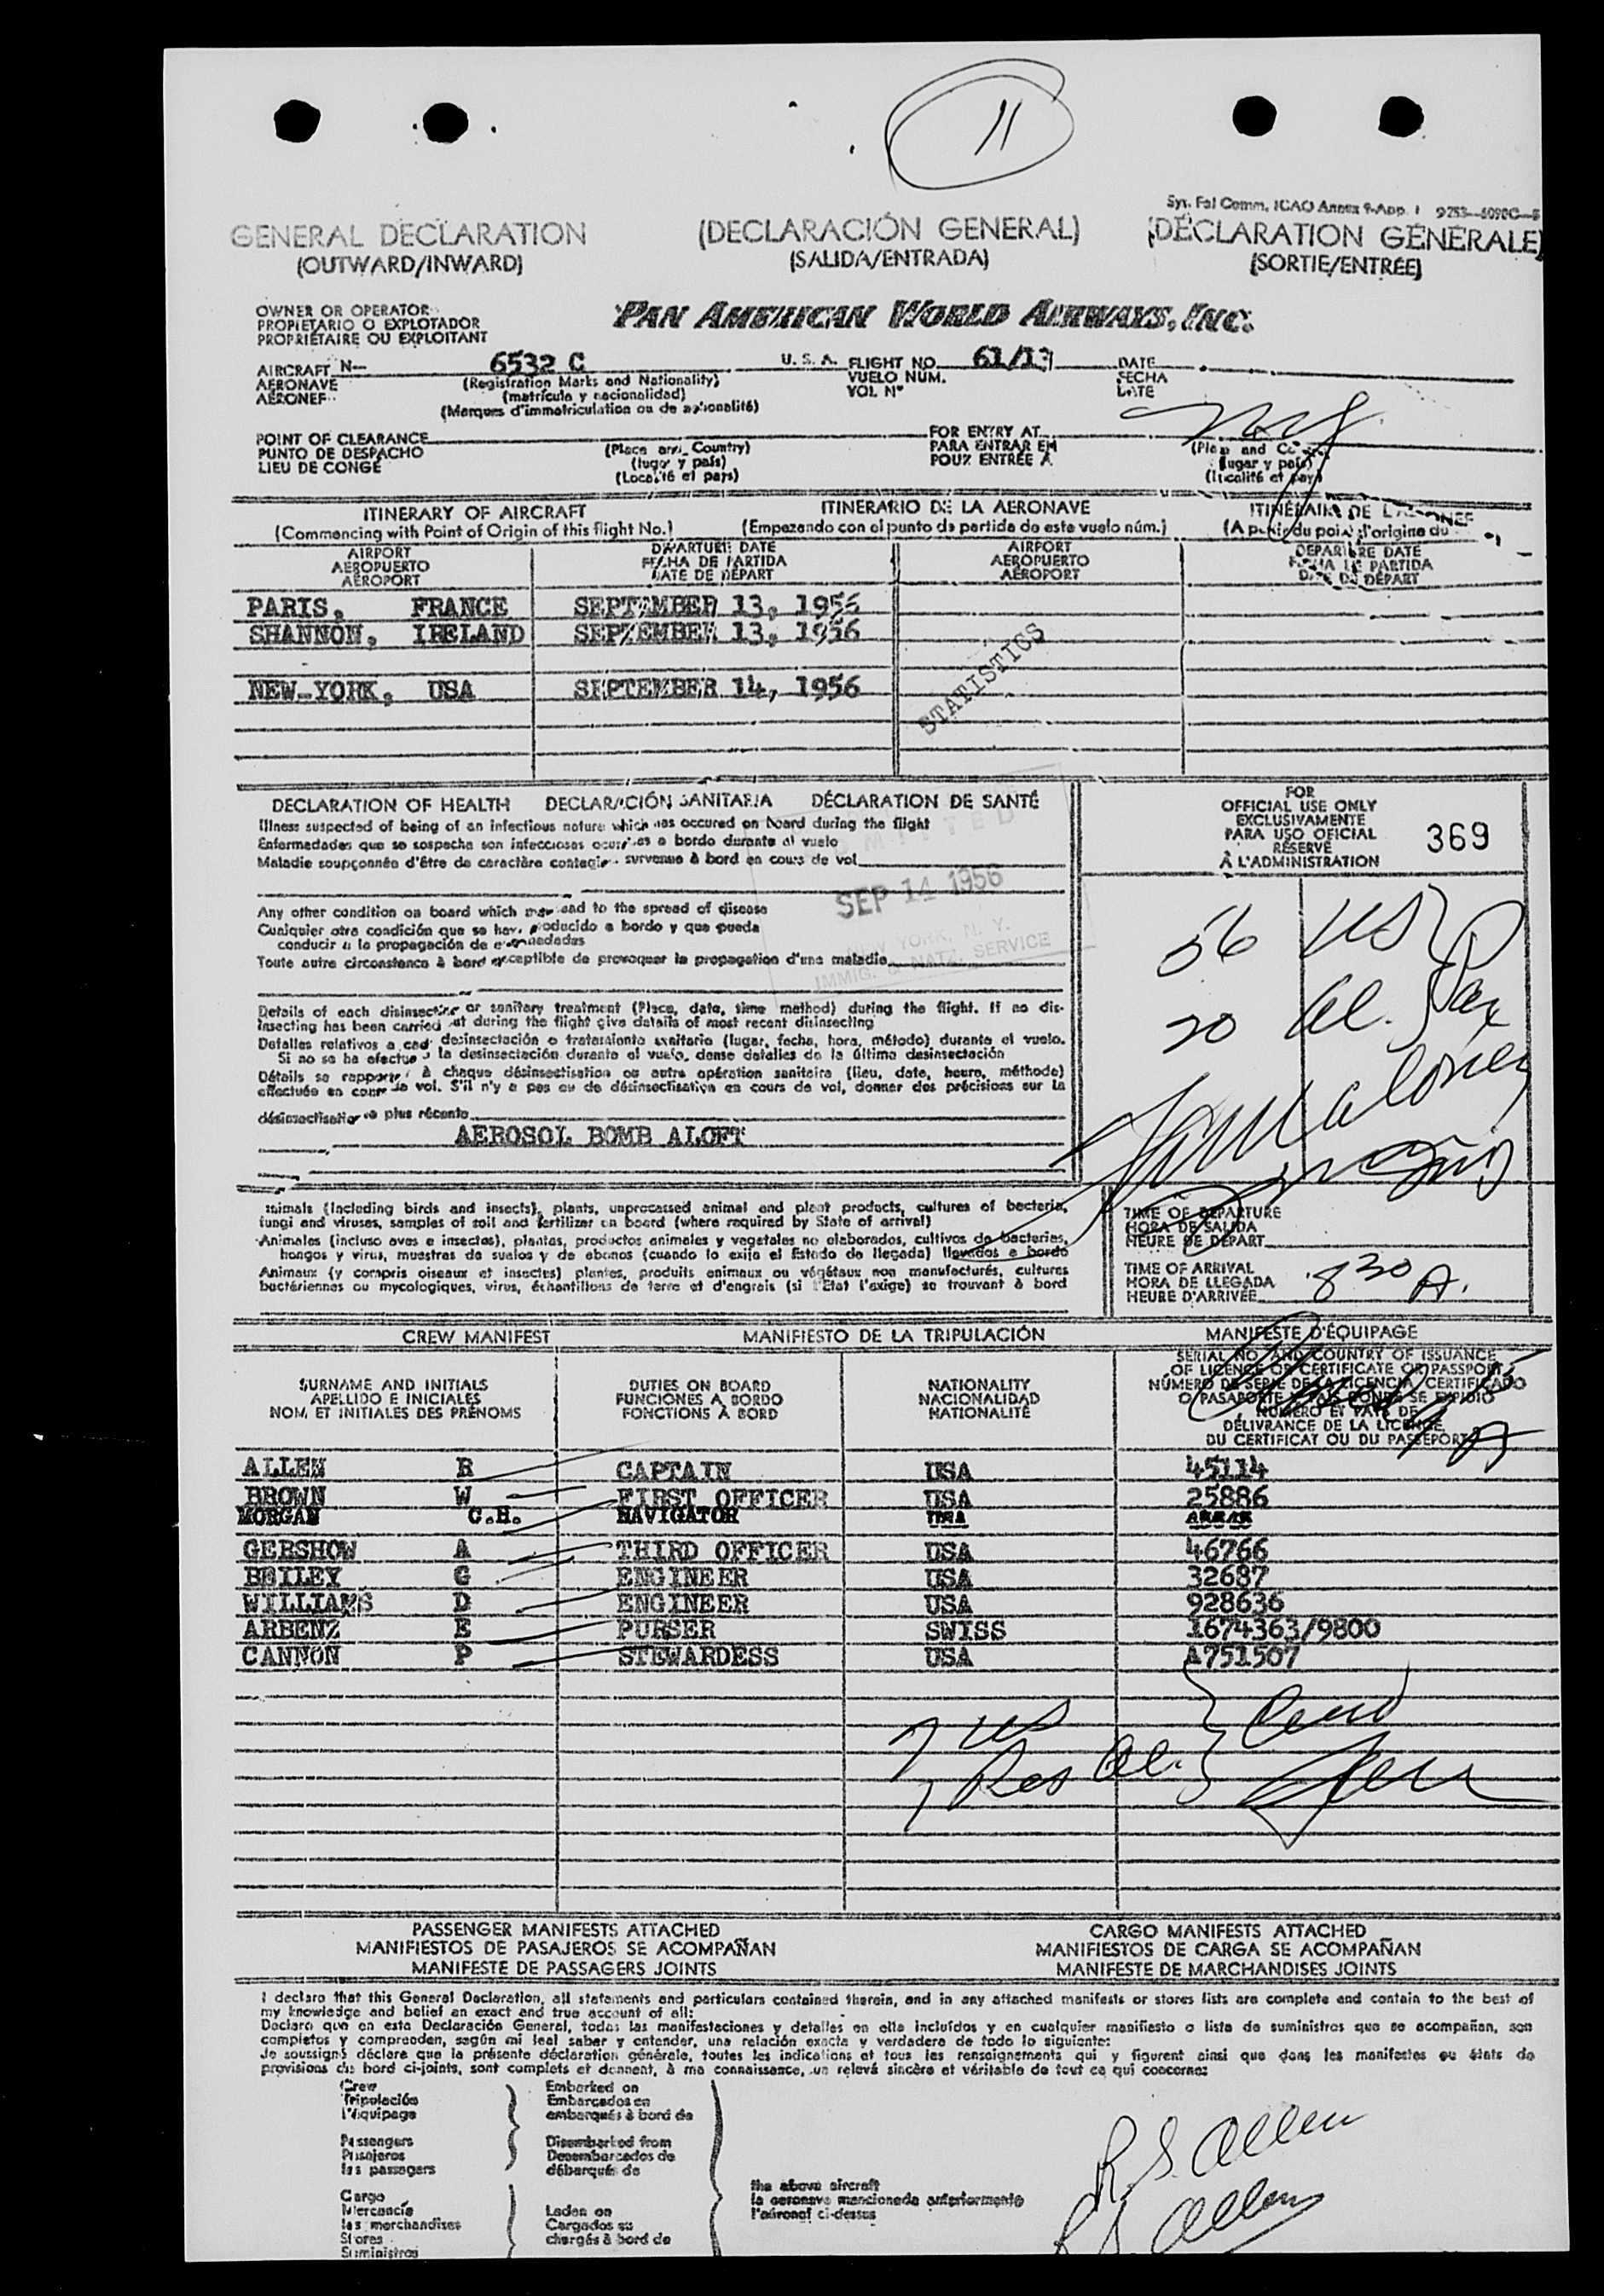 11
Sys. Fal Comm. ICAO Annex 9-App. 1
GENERAL DECLARATION (DECLARACIÓN GENERAL) (DÉCLARATION GÉNÉRALE)
(OUTWARD/INWARD) (SALIDA/ENTRADA) (SORTIE/ENTRÉE)
OWNER OR OPERATOR
PROPIETARIO O EXPLOTADOR
PROPRIÉTAIRE OU EXPLOITANT
PAN AMERICAN WORLD AIRWAYS, INC.
AIRCRAFT N— 6532 C U. S. A. FLIGHT NO. 61/13 DATE
AERONAVE (Registration Marks and Nationality) VUELO NUM. FECHA
AÉRONEF (matrícula y nacionalidad) VOL N° DATE
(Marques d'immatriculation ou de nationalité)
POINT OF CLEARANCE (Place and Country) FOR ENTRY AT (Place and
PUNTO DE DESPACHO (lugar y país) PARA ENTRAR EN (lugar y país)
LIEU DE CONGÉ (Localité et pays) POUR ENTRÉE À (localité et pays
ITINERARY OF AIRCRAFT ITINERARIO DE LA AERONAVE ITINÉRAIRE DE L'AÉRONEF
(Commencing with Point of Origin of this flight No.) (Empezando con el punto de partida de este vuelo núm.) (A partir du point d'origine du
AIRPORT DEPARTURE DATE AIRPORT DEPARTURE DATE
AEROPUERTO FECHA DE PARTIDA AEROPUERTO FECHA DE PARTIDA
AÉROPORT DATE DE DÉPART AÉROPORT DATE DE DÉPART
PARIS, FRANCE SEPTEMBER 13, 1956
SHANNON, IRELAND SEPTEMBER 13, 1956
NEW-YORK, USA SEPTEMBER 14, 1956
STATISTICS
DECLARATION OF HEALTH DECLARACIÓN SANITARIA DÉCLARATION DE SANTÉ
Illness suspected of being of an infectious nature which has occured on board during the flight
Enfermedades que se sospecha son infecciosas ocurridas a bordo durante el vuelo
Maladie soupçonnée d'être de caractère contagieux survenue à bord en cours de vol
ADMITTED
SEP 14 1956
NEW YORK, N. Y.
IMMIG. & NATZ. SERVICE
Any other condition on board which may lead to the spread of disease
Cualquier otra condición que se haya producido a bordo y que pueda
conducir a la propagación de enfermedades
Toute autre circonstance à bord susceptible de provoquer la propagation d'une maladie
Details of each disinsecting or sanitary treatment (Place, date, time method) during the flight. If no dis-
insecting has been carried out during the flight give details of most recent disinsecting
Detalles relativos a cada desinsectación o tratamiento sanitario (lugar, fecha, hora, método) durante el vuelo.
Si no se ha efectuado la desinsectación durante el vuelo, dense detalles de la última desinsectación
Détails se rapportant à chaque désinsectisation ou autre opération sanitaire (lieu, date, heure, méthode)
effectuée en cours de vol. S'il n'y a pas eu de désinsectisation en cours de vol, donner des précisions sur la
désinsectisation la plus récente
AEROSOL BOMB ALOFT
FOR
OFFICIAL USE ONLY
EXCLUSIVAMENTE
PARA USO OFICIAL
RÉSERVÉ
À L'ADMINISTRATION
369
56 US
20 al. Pax
Animals (Including birds and insects), plants, unprocessed animal and plant products, cultures of bacteria,
fungi and viruses, samples of soil and fertilizer on board (where required by State of arrival)
Animales (incluso aves e insectos), plantas, productos animales y vegetales no elaborados, cultivos de bacterias,
hongos y virus, muestras de suelos y de abonos (cuando lo exija el Estado de llegada) llevados a bordo
Animaux (y compris oiseaux et insectes) plantes, produits animaux ou végétaux non manufacturés, cultures
bactériennes ou mycologiques, virus, échantillons de terre et d'engrais (si l'État l'exige) se trouvant à bord
TIME OF DEPARTURE
HORA DE SALIDA
HEURE DE DÉPART
TIME OF ARRIVAL
HORA DE LLEGADA 8 30 A.
HEURE D'ARRIVÉE
CREW MANIFEST MANIFIESTO DE LA TRIPULACIÓN MANIFESTE D'ÉQUIPAGE
SURNAME AND INITIALS DUTIES ON BOARD NATIONALITY
APELLIDO E INICIALES FUNCIONES A BORDO NACIONALIDAD
NOM ET INITIALES DES PRÉNOMS FONCTIONS À BORD NATIONALITÉ
SERIAL NO. AND COUNTRY OF ISSUANCE
OF LICENCE OR CERTIFICATE OR PASSPORT
NÚMERO DE SERIE DE LA LICENCIA, CERTIFICADO
O PASAPORTE Y PAÍS DONDE SE EXPIDIÓ
NUMÉRO ET PAYS DE
DÉLIVRANCE DE LA LICENCE,
DU CERTIFICAT OU DU PASSEPORT
ALLEN R CAPTAIN USA 45114
BROWN W FIRST OFFICER USA 25886
MORGAN C.H. NAVIGATOR USA
GERSHOW A THIRD OFFICER USA 46766
BEILEY G ENGINEER USA 32687
WILLIAMS D ENGINEER USA 928636
ARBENZ E PURSER SWISS 1674363/9800
CANNON P STEWARDESS USA A751507
7 US
1 Res al.
PASSENGER MANIFESTS ATTACHED CARGO MANIFESTS ATTACHED
MANIFIESTOS DE PASAJEROS SE ACOMPAÑAN MANIFIESTOS DE CARGA SE ACOMPAÑAN
MANIFESTE DE PASSAGERS JOINTS MANIFESTE DE MARCHANDISES JOINTS
I declare that this General Declaration, all statements and particulars contained therein, and in any attached manifests or stores lists are complete and contain to the best of
my knowledge and belief an exact and true account of all:
Declaro que en esta Declaración General, todas las manifestaciones y detalles en ella incluídos y en cualquier manifiesto o lista de suministros que se acompañan, son
completos y comprenden, según mi leal saber y entender, una relación exacta y verdadera de todo lo siguiente:
Je soussigné déclare que la présente déclaration générale, toutes les indications et tous les renseignements qui y figurent ainsi que dans les manifestes ou états de
provisions du bord ci-joints, sont complets et donnent, à ma connaissance, un relevé sincère et véritable de tout ce qui concerne:
Crew Embarked on
Tripulación Embarcados en
l'équipage embarqués à bord de
Passengers Disembarked from
Pasajeros Desembarcados de
les passagers débarqués de
the above aircraft
la aeronave mencionada anteriormente
l'aéronef ci-dessus
Cargo
Mercancía Laden on
les marchandises Cargados en
Stores chargés à bord de
Suministros
R. S. Allen
R. S. Allen